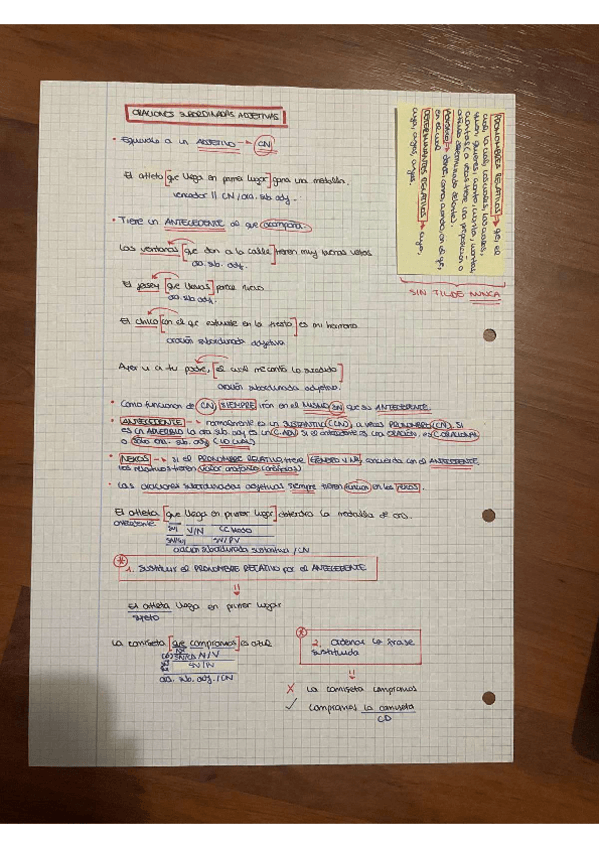 ORACIONES SUBORDINADAS ADJETIVAS
• Equivale a un ADJETIVO → CN
El atleta [que llega en primer lugar] gana una medalla.
vencedor // CN / ora. sub. adj.
• Tiene un ANTECEDENTE al que acompaña:
Las ventanas [que dan a la calle] tienen muy buenas vistas
ora. sub. adj.
El jersey [que llevas] parece nuevo
ora. sub. adj.
El chico [con el que estuviste en la fiesta] es mi hermano
oración subordinada adjetiva
Ayer vi a tu padre, [el cual me contó lo sucedido]
oración subordinada adjetiva.
• Como funcionan de CN, SIEMPRE irán en el MISMO SN que su ANTECEDENTE.
• ANTECEDENTE → normalmente es un SUSTANTIVO (CN), a veces PRONOMBRE (CN). Si
es un ADVERBIO la ora sub. adj es un C.ADV. Si el antecedente es una ORACIÓN, es C. ORACIONAL
o sólo ora. sub. adj (lo cual)
• NEXOS → Si el PRONOMBRE RELATIVO tiene GÉNERO Y Nº, concuerda con el ANTECEDENTE.
Los relativos tienen valor anafórico
• Las oraciones subordinadas adjetivas siempre tienen función en los nexos.
El atleta [que llega en primer lugar] obtendrá la medalla de oro.
antecedente SUJ V/N CC Modo
SN/SUJ SV/PV
oración subordinada sustantiva / CN
* 1. Sustituir el PRONOMBRE RELATIVO por el ANTECEDENTE
El atleta llega en primer lugar
sujeto
La camiseta [que compramos] es azul
N/V
SV/
ora. sub. adj. / CN
* 2. Ordenar la frase
sustituida
✗ La camiseta compramos
✓ Compramos la camiseta
CD
PRONOMBRES RELATIVOS → que, el
cual, la cual, los cuales, las cuales,
quien, quienes, cuanto, cuanta, cuantos,
cuantas (a veces tiene una preposición o
artículo determinado delante).
→ donde, como, cuando, en el que,
en el cual
DETERMINANTES RELATIVOS → cuyo,
cuya, cuyos, cuyas.
SIN TILDE NUNCA